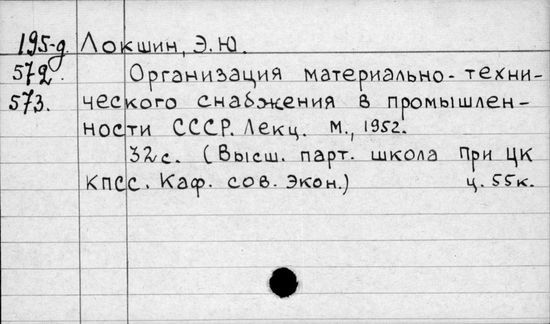 195-д. Локшин, Э.Ю.
572. Организация материально-техни-
573. ческого снабжения в промышлен-
ности СССР. Лекц. М., 1952.
32 с. (Высш. парт. школа при ЦК
КПСС. Каф. сов. Экон.) ц. 55к.